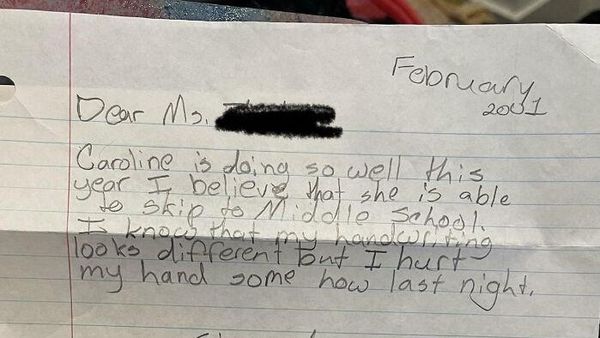 February
2001
Dear Ms.
Caroline is doing so well this
year I believe that she is able
to skip to Middle School.
I know that my handwriting
looks different but I hurt
my hand some how last night.